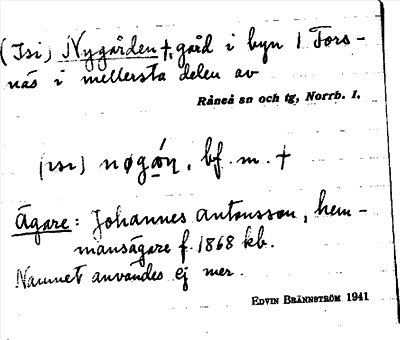 (Isi) Nygården †, gård i byn 1 Fors-
näs i mellersta delen av
Råneå sn och tg, Norrb. l.
(ısı) nøgɷ́ɳ, bf. m. †
Ägare: Johannes Antonsson, hem-
mansägare f. 1868 kb.
Namnet användes ej mer.
EDVIN BRÄNNSTRÖM 1941